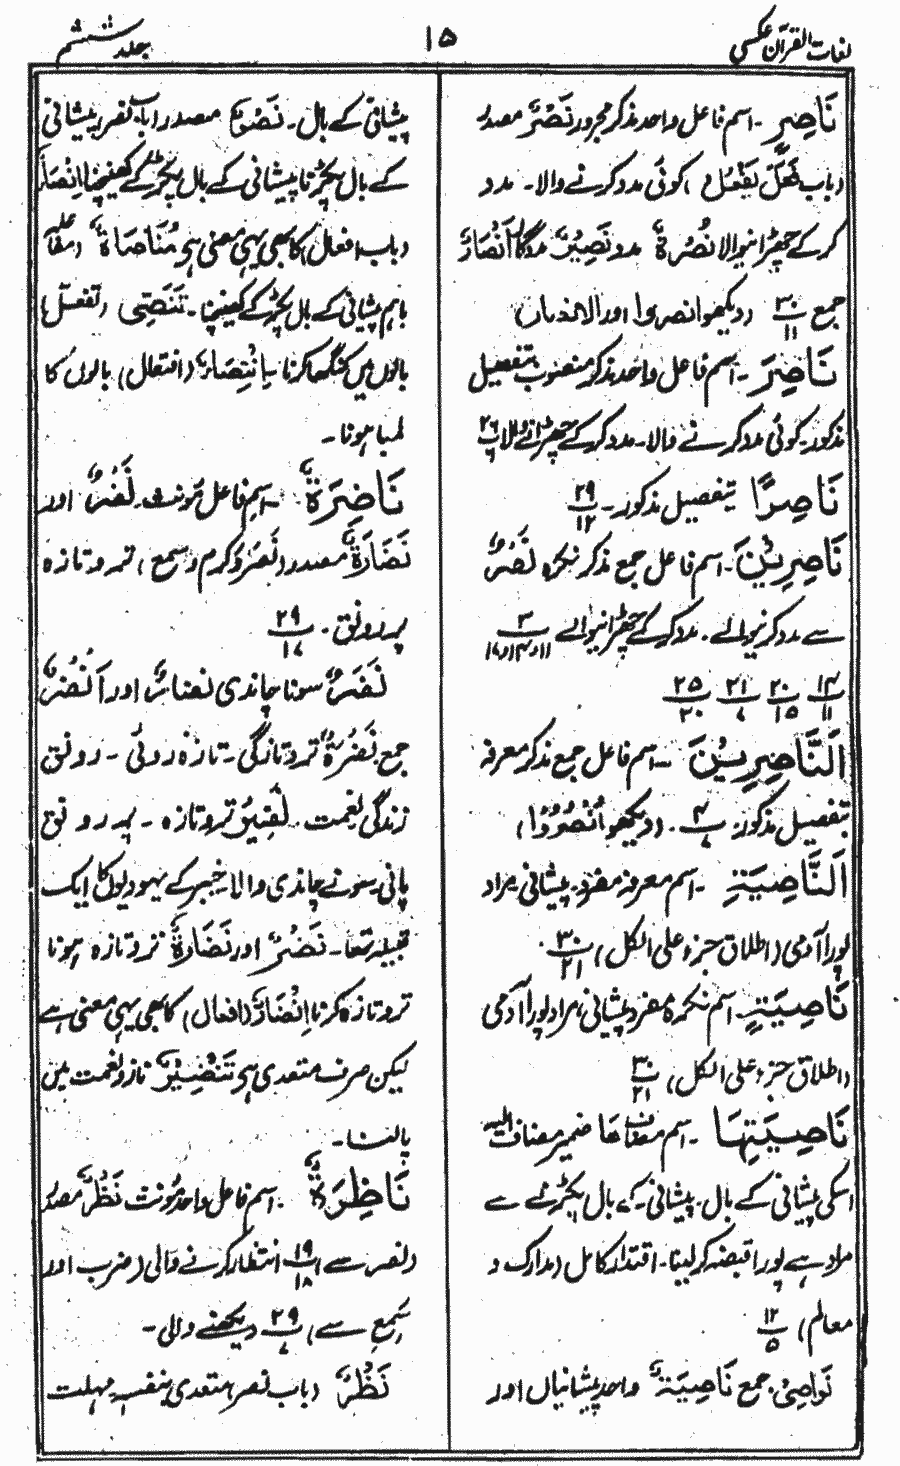 لغات القرآن عکسی
۱۵
جلد ششم
نَاصِرٍ ۔ اسم فاعل واحد مذکر مجرور نَصْرٌ مصدر
(باب فَعَلَ یَفْعُلُ) کوئی مدد کرنے والا۔ مدد
کر کے چھڑانیوالا نُصْرَةٌ مدد نَصِیْرٌ مددگار اَنْصَارٌ
جمع ۳۰/۱۱ (دیکھو انصروا اور الانصار)
نَاصِرَ ۔ اسم فاعل واحد مذکر منصوب تفصیل
مذکور۔ کوئی مدد کرنے والا۔ مدد کر کے چھڑانے والا پ ۲۶/۶
نَاصِرًا تفصیل مذکور۔ ۲۹/۱۲
نَاصِرِیْنَ ۔ اسم فاعل جمع مذکر نکرہ نَصْرٌ
سے مدد کرنیوالے۔ مدد کر کے چھڑانیوالے
۲۰/۱۵ ۲۱/۷ ۲۵/۲۰
اَلنَّاصِرِیْنَ ۔ اسم فاعل جمع مذکر معرفہ
تفصیل مذکور: ۴/۷ ۔ (دیکھو اُنْصُرُوْا)
اَلنَّاصِیَةِ ۔ اسم معرفہ مفرد۔ پیشانی مراد
پورا آدمی (اطلاق جزء علی الکل) ۳۰/۲۱ ۔
نَاصِیَةٍ ۔ اسم نکرہ مفرد پیشانی مراد پورا آدمی
(اطلاق جزء علی الکل) ۳۰/۲۱
نَاصِیَتِهَا ۔ اسم مضاف ھَا ضمیر مضاف الیہ
اسکی پیشانی کے بال۔ پیشانی کے بال پکڑنے سے
مراد ہے پورا قبضہ کر لینا۔ اقتدار کامل (مدارک و
معالم) ۱۲/۵
نَوَاصِیْ۔ جمع نَاصِیَةٌ واحد پیشانیاں اور
پیشانی کے بال۔ نَصْوٌ مصدر (باب نصر) پیشانی
کے بال پکڑنا پیشانی کے بال پکڑ کے کھینچنا اِنْصَاءٌ
(باب افعال) کا بھی یہی معنی ہے مُنَاصَاةٌ (مفاعلہ)
باہم پیشانی کے بال پکڑ کے کھینچنا۔ تَنَصِّی (تفعل)
بالوں میں کنگھا کرنا۔ اِنْتِصَاءٌ (افتعال) بالوں کا
لمبا ہونا۔
نَاضِرَةٌ ۔ اسم فاعل مؤنث۔ نَضْرٌ اور
نَضَارَةٌ مصدر (نَصَرَ و کرم و سمع) تر و تازہ
پر رونق۔ ۲۹/۱۷
نَضْرٌ سونا چاندی نضارٌ اور اَنْضُرٌ
جمع نَضْرَةٌ تر و تازگی۔ تازہ روئی۔ رونق
زندگی نعمت۔ نَضِیْرٌ تر و تازہ۔ پر رونق
پانی۔ سونے چاندی والا خیبر کے یہودیوں کا ایک
قبیلہ تھا۔ نَضْرٌ اور نَضَارَةٌ تر و تازہ ہونا
تر و تازہ کرنا اِنْضَارٌ (افعال) کا بھی یہی معنی ہے
لیکن صرف متعدی ہے تَنْضِیْرٌ ناز و نعمت میں
پالنا۔
نَاظِرَةٌ ۔ اسم فاعل واحد مؤنث نَظْرٌ مصدر
(نصر سے ۱۹/۱۸ انتظار کرنے والی (ضرب اور
سَمِعَ سے) ۲۹/۷ دیکھنے والی۔
نَظْرٌ (باب نصر) متعدی بنفسہ مہلت